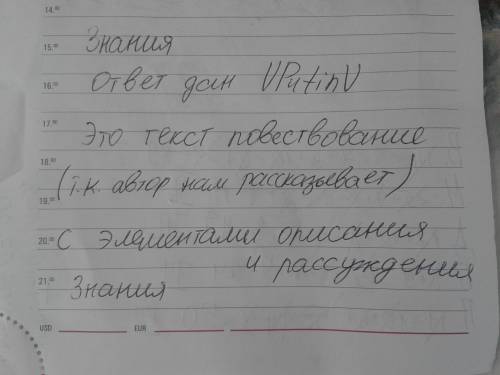 14.⁰⁰
15.⁰⁰ Знания
16.⁰⁰ Ответ дан VPutinV
17.⁰⁰ Это текст повествование
18.⁰⁰
(т.к. автор нам рассказывает)
19.⁰⁰
20.⁰⁰ С элементами описания
и рассуждения
21.⁰⁰ Знания
USD EUR